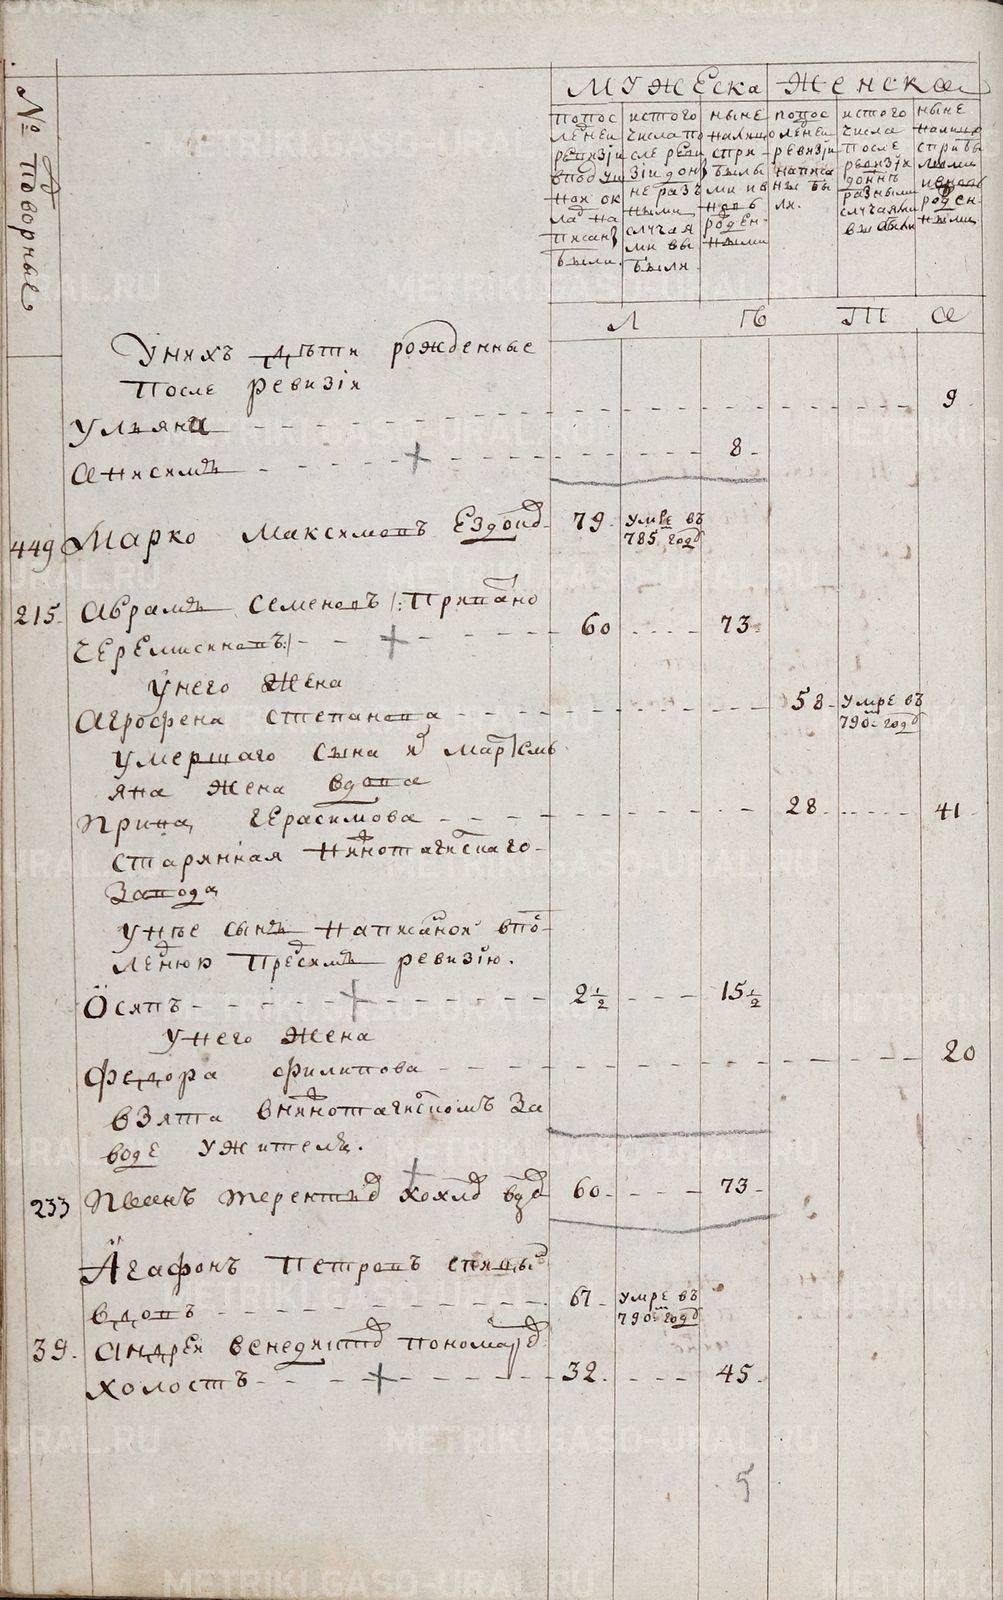 № подворные
Мужеска
Женска
попос
ледней
ревизіи
вподуш
ной ок
лад на
писаны
были.
истого
числа по
сле реви
зіи дон
не разъ
ными
случая
ми вы
были.
ныне
налицо
спри-
былы
ми ив
новь
рожден-
ными
попос
ледней
ревизіи
написа
ны бы
ли.
истого
числа
после
ревизіи
доннѣ
разными
случаями
выбыли
ныне
налицо
сприбы
лыми
ивновь
рожден-
ными
Л
ѣ
Т
а
Унихъ дѣти рожденные
После ревизіи
Ульяна 9
Анисимъ 8
449 Марко Максимовъ Ездов 79 Умре въ
785 годѣ
215 Аврамъ Семеновъ /: Припісано
Черемисиновъ :/ 60 73
Унего жена
Агрофена степанова 58 Умре въ
790м годѣ
умершаго сына ж Мартемь
яна жена вдова
Ирина Герасимова 28 41
старинная Нижнотагилскаго
Завода
Унѣе сынъ написаной впо-
следнюю пресимъ ревизію.
Осипъ 2½ 15½
Унего жена
Федора Филипова 20
взята внижнотагилскомъ За
воде ужителя.
233 Иванъ терентьев хохлов вдов 60 73
Агафонъ Петровъ
вдовъ 67 умре въ
790м годѣ
39. Андрей венедиктов пономарев
холостъ 32. 45
5
METRIKI.GASO-URAL.RU